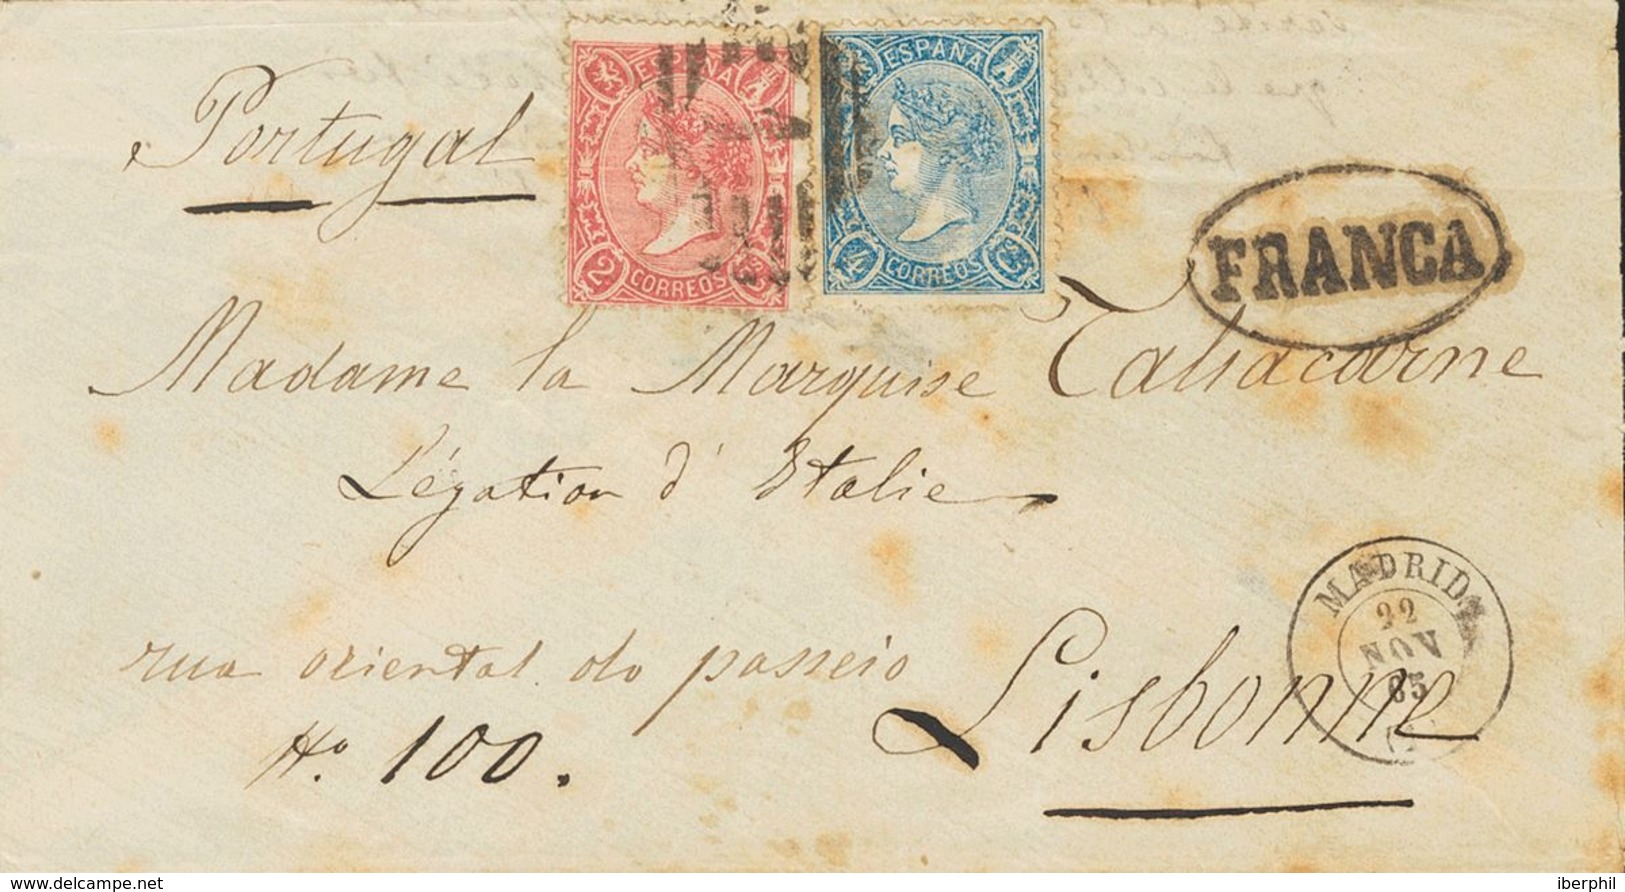 Portugal
ESPAÑA
2 CORREOS Cs
ESPAÑA
4 CORREOS Cs
FRANCA
Madame la Marquise Taliacarne
Légation d'Italie
rua oriental do passeio
No. 100.
Lisbonne
MADRID
22
NOV
65
iberphil